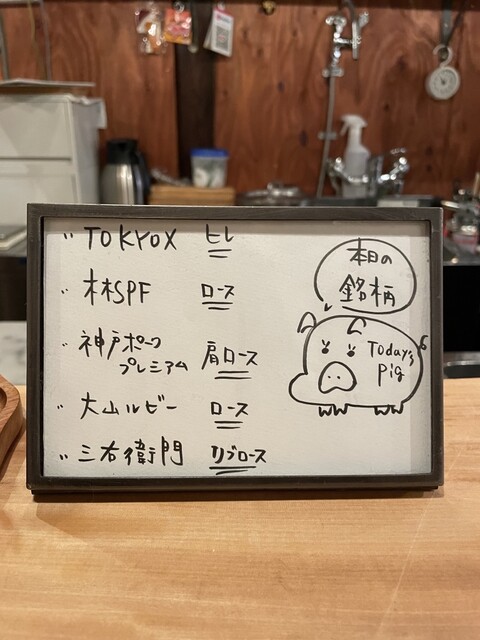 〃 TOKYOX ヒレ
〃 林SPF ロース
〃 神戸ポーク
プレミアム 肩ロース
〃 大山ルビー ロース
〃 三右衛門 リブロース
本日の
銘柄
Today's
pig